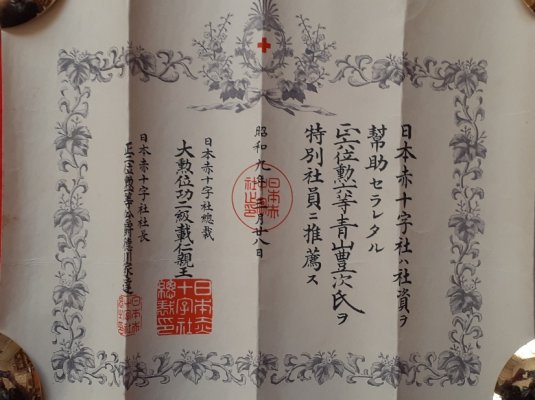 日本赤十字社ハ社資ヲ
幇助セラレタル
正六位勲六等青山豊次氏ヲ
特別社員ニ推薦ス
昭和九年三月廿八日
日本赤十字社総裁
大勲位功二級載仁親王
日本赤十字社社長
正二位勲一等公爵徳川家達
日本赤
十字社
総裁印